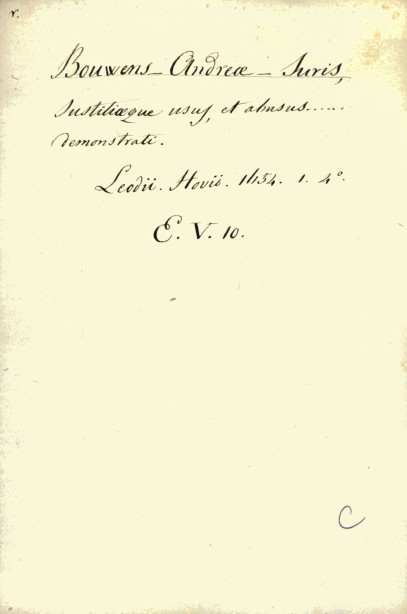 r.
Bouwens - Andreæ - Juris,
Justitiæque usus, et abusus.....
demonstrati.
Leodii. Hovii. 1654. 1. 4°.
E. V. 10.
C